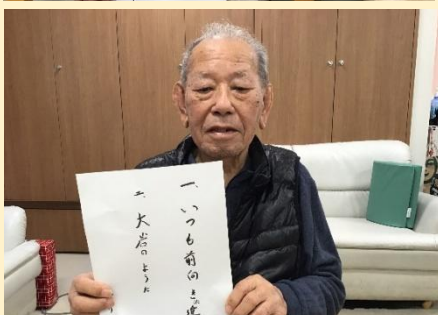 一、いつも前向きの
二、大岩のように